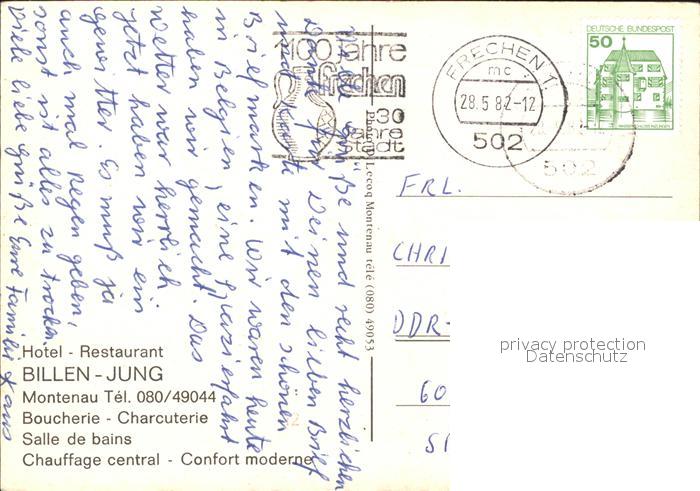 Viele Grüße und recht herzlichen
Dank für Deinen lieben Brief
und mit den schönen
Briefmarken. Wir waren heute
in Belgien, eine Spazierfahrt
haben wir gemacht. Das
Wetter war herrlich
jetzt haben wir ein
gewitter Es muß ja
auch mal regen geben,
sonst ist alles zu trocken
Viele liebe grüße Eure Familie
Hotel - Restaurant
BILLEN - JUNG
Montenau Tél. 080/49044
Boucherie - Charcuterie
Salle de bains
Chauffage central - Confort moderne
Lecoq Montenau télé (080) 49053
1100 Jahre
frechen
30
Jahre
Stadt
FRECHEN 1
mc
28.5.82-12
502
502
DEUTSCHE BUNDESPOST
50
FRL.
CHRI
DDR-
60
privacy protection
Datenschutz